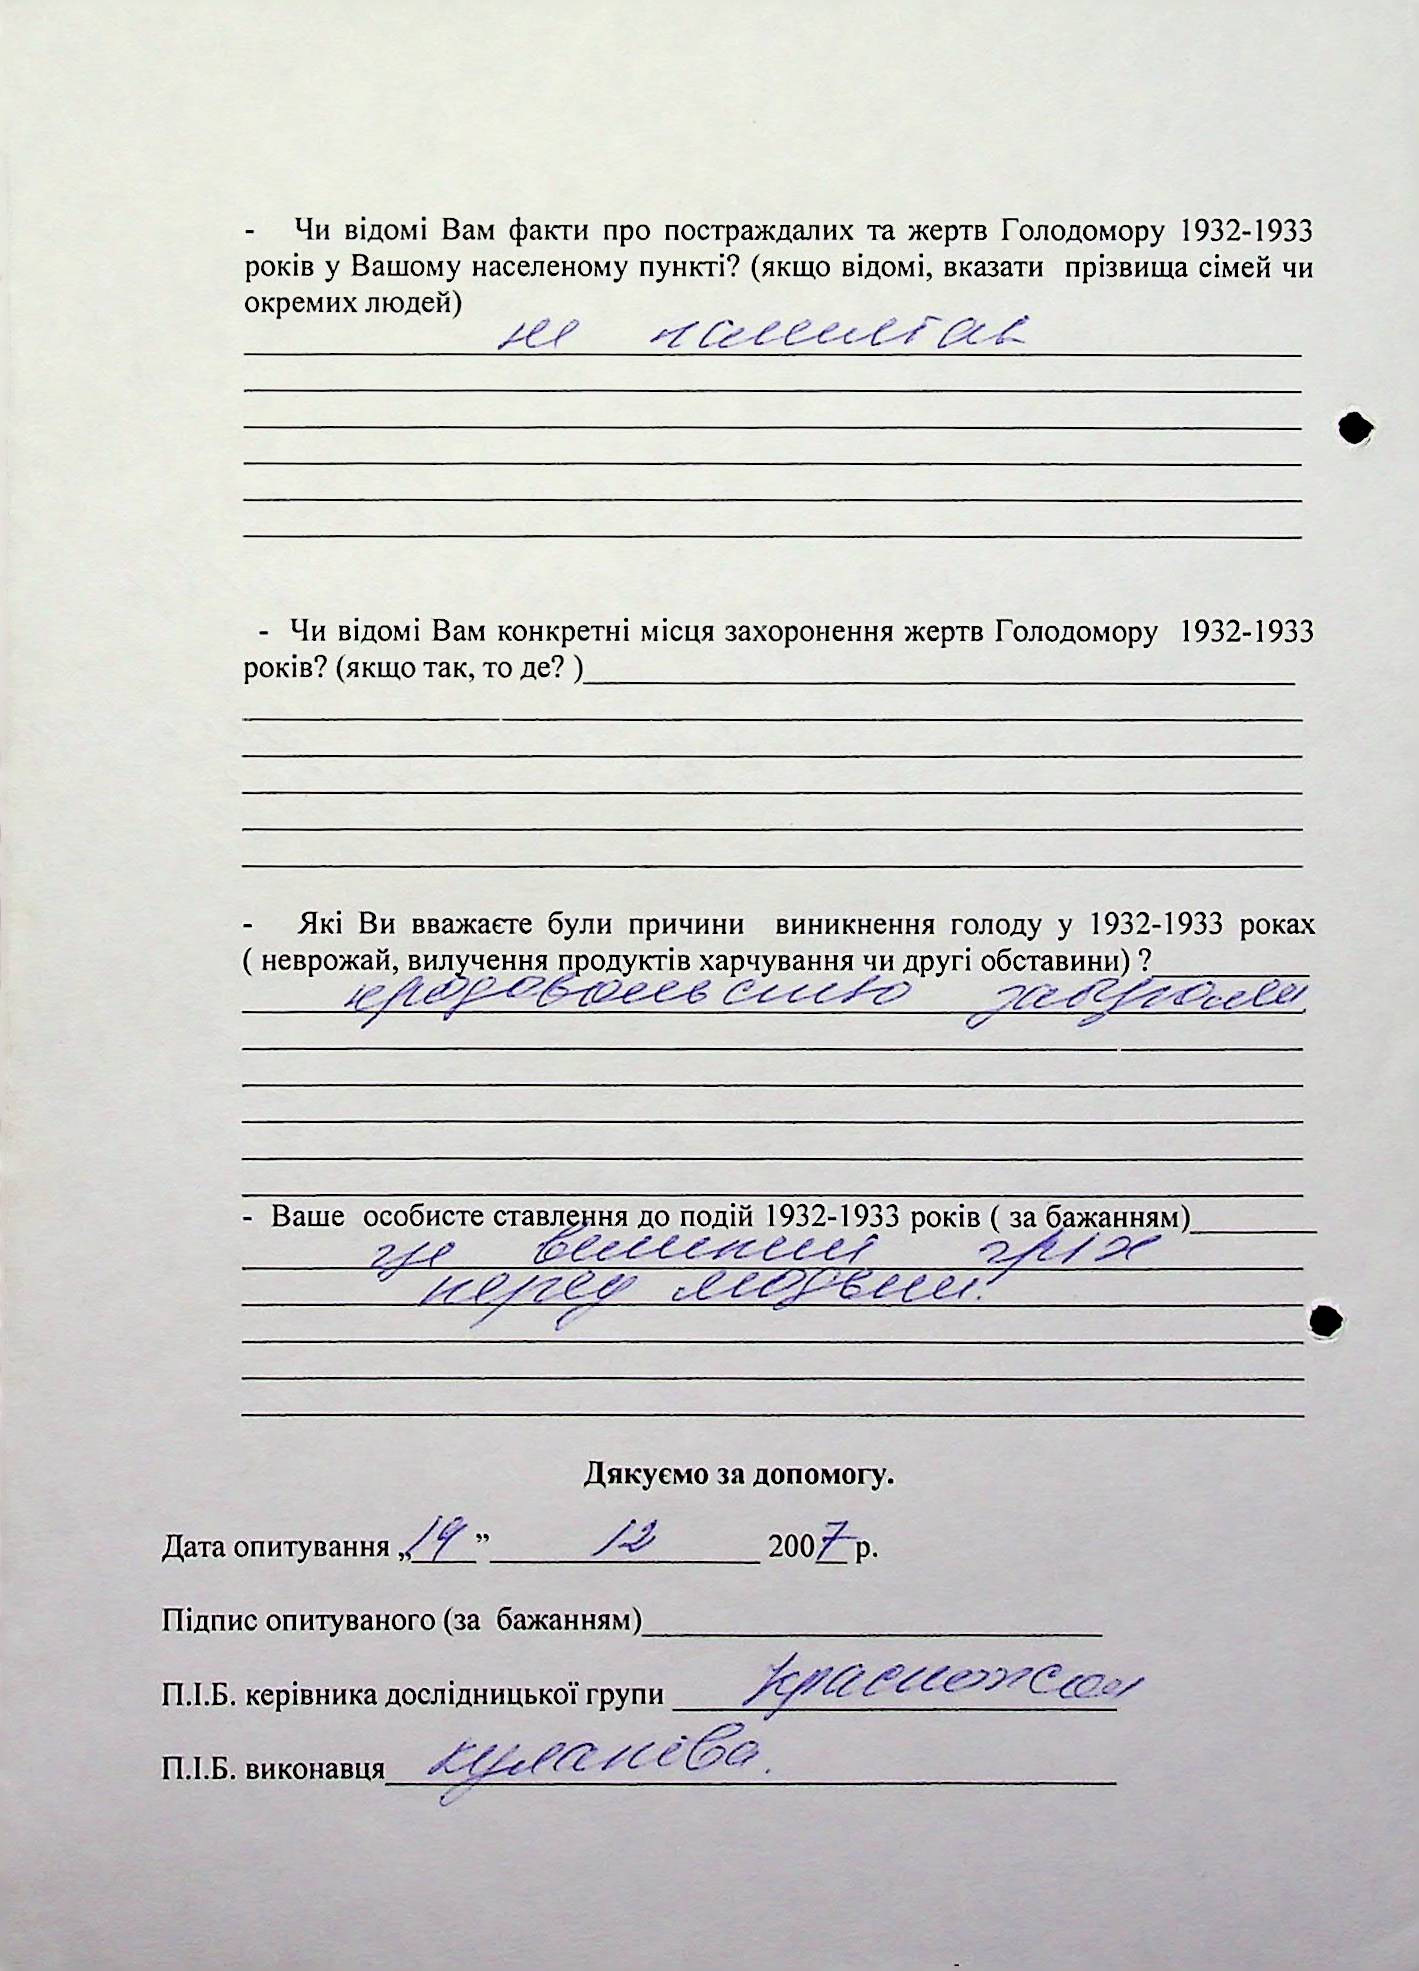 - Чи відомі Вам факти про постраждалих та жертв Голодомору 1932-1933
років у Вашому населеному пункті? (якщо відомі, вказати прізвища сімей чи
окремих людей)
не памятаю
- Чи відомі Вам конкретні місця захоронення жертв Голодомору 1932-1933
років? (якщо так, то де? )
- Які Ви вважаєте були причини виникнення голоду у 1932-1933 роках
( неврожай, вилучення продуктів харчування чи другі обставини) ?
продовольство забрали
- Ваше особисте ставлення до подій 1932-1933 років ( за бажанням)
це великий гріх
перед людьми.
Дякуємо за допомогу.
Дата опитування „19” 12 2007 р.
Підпис опитуваного (за бажанням)
П.І.Б. керівника дослідницької групи
П.І.Б. виконавця